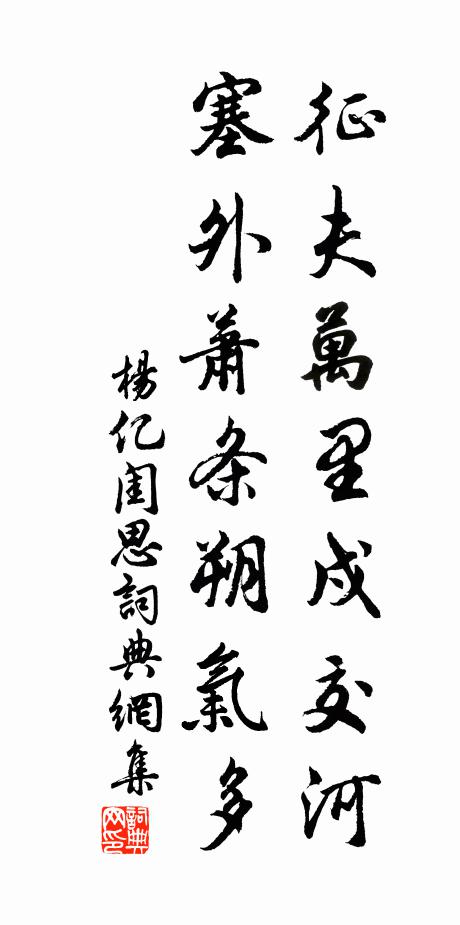 征夫萬里戍交河
塞外蕭条朔氣多
楊亿闺思詞典網集
詞典网印